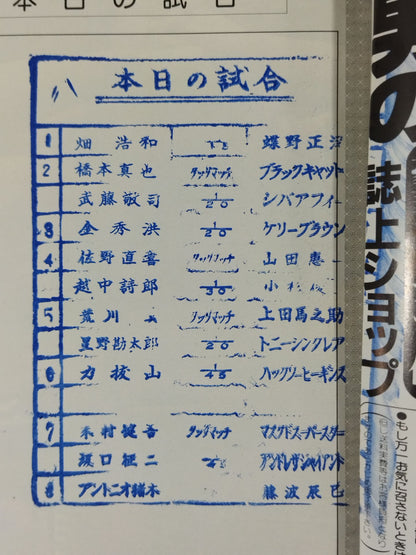 本日の試合
本日の試合
1 畑 浩和 1/15 蝶野正洋
2 橋本真也 タッグマッチ ブラックキャット
武藤敬司 1/20 シバアフィー
3 金秀洪 1/20 ケリーブラウン
4 佐野直喜 タッグマッチ 山田恵一
越中詩郎 1/30 小杉俊二
5 荒川 真 タッグマッチ 上田馬之助
星野勘太郎 1/20 トニーシンクレア
6 力抜山 1/45 ハックソーヒギンズ
7 木村健吾 タッグマッチ マスクドスーパースター
坂口征二 アンドレザジャイアント
8 アントニオ猪木 藤波辰巳
誌上ショップ
●もし万一お気に召さないときは